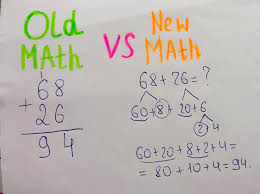 Old
Math
VS
New
Math
1
68
+ 26
94
68+26=?
60+8+20+6
2+4
60+20+8+2+4=
=80+10+4=94.